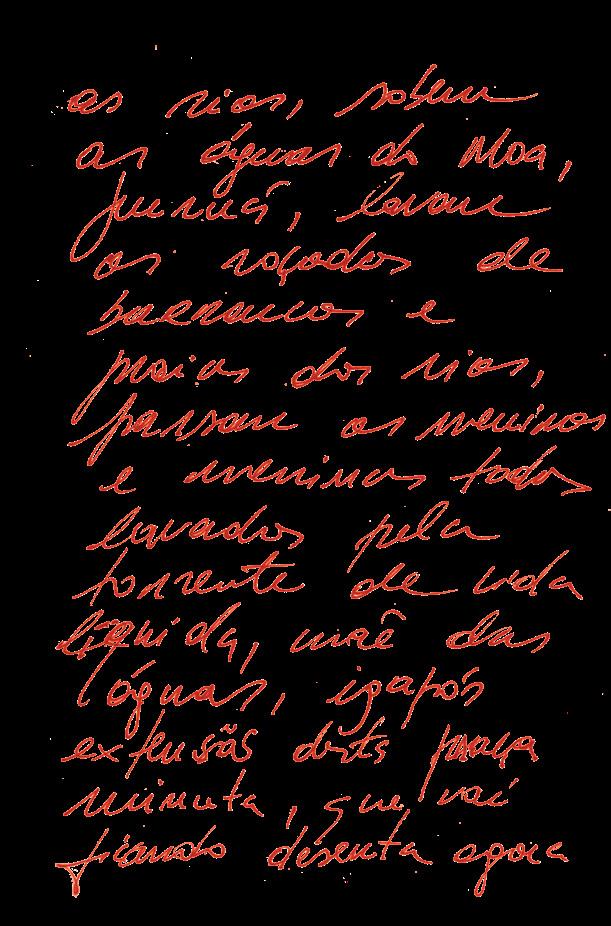 os rios, sobem
as águas do Moa,
Juruá, lavam
os roçados de
barrancos e
praias dos rios,
passam os meninos
e meninas todos
lavados pela
torrente de vida
líquida, mãe das
águas, igapós
extensões desta praça
minuta, que vai
ficando deserta agora